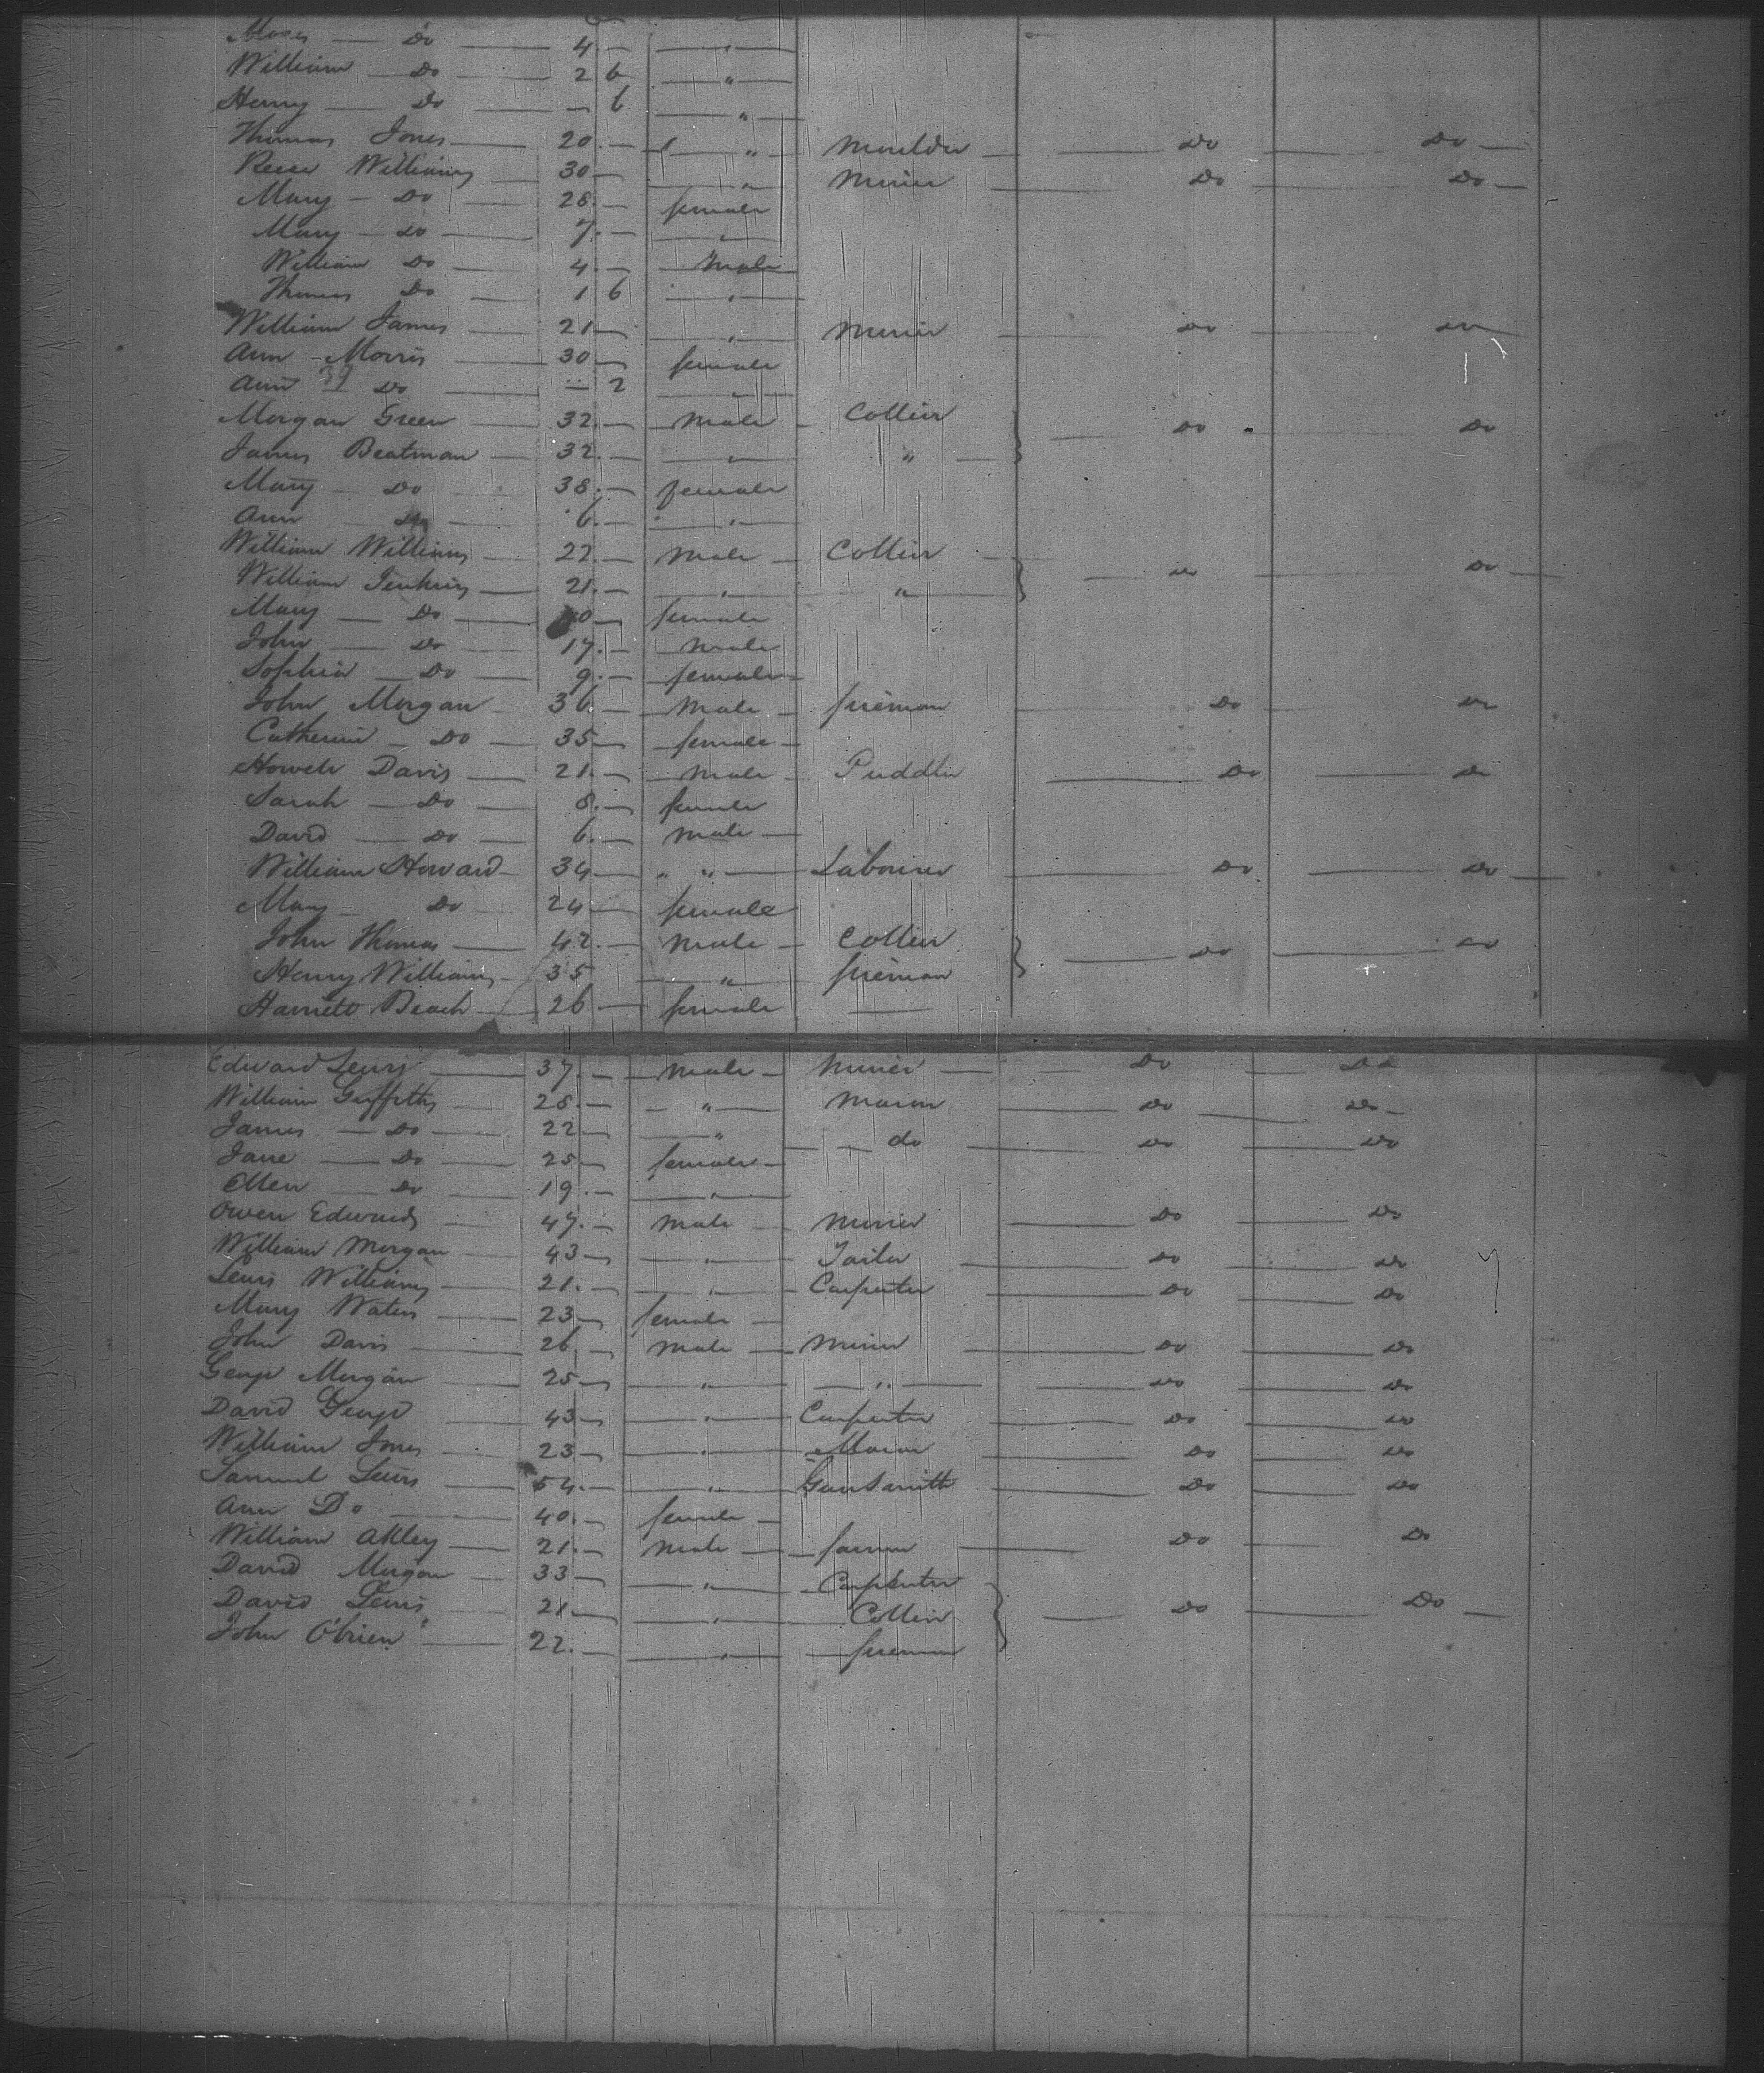 Moses — Do — 4 — "
William — Do — 2 6 — "
Henry — Do — 6 — "
Thomas Jones — 20 — " — Moulder — Do — Do
Reese Williams — 30 — " — Miner — Do — Do
Mary — Do — 28 — female
Mary — Do — 7 — "
William Do — 4 — Male
Thomas Do — 1 6 — "
William James — 21 — " — Miner — Do — Do
Ann Morris — 30 — female
Ann 39 Do — 2 — "
Morgan Green — 32 — Male — Collier } — Do — Do
James Beatman — 32 — " — "
Mary — Do — 38 — female
Ann Do — 6 — "
William Williams — 22 — Male — Collier } — Do — Do
William Jenkins — 21 — " — "
Mary — Do — female
John — Do — 17 — Male
Sophia — Do — 9 — female
John Morgan — 36 — Male — fireman — Do — Do
Catherine — Do — 35 — female
Howell Davis — 21 — Male — Puddler — Do — Do
Sarah — Do — 8 — female
David — Do — 6 — Male
William Howard — 34 — " " — Labourer — Do — Do
Mary — Do — 24 — female
John Thomas — 42 — Male — Collier } — Do — Do
Henry Williams — 35 — " — fireman
Harriett Beach — 26 — female —
Edward Lewis — 37 — Male — Miner — Do — Do
William Griffiths — 28 — " — Mason — Do — Do
James — Do — 22 — " — do — Do — Do
Jane — Do — 25 — female
Ellen — Do — 19 — "
Owen Edwards — 47 — Male — Miner — Do — Do
William Morgan — 43 — " — Tailor — Do — Do
Lewis Williams — 21 — " — Carpenter — Do — Do
Mary Waters — 23 — female
John Davis — 26 — Male — Miner — Do — Do
George Morgan — 25 — " — " — Do — Do
David George — 43 — " — Carpenter — Do — Do
William Jones — 23 — " — Mason — Do — Do
Samuel Lewis — 54 — " — Gun Smith — Do — Do
Ann Do — 40 — female
William Akley — 21 — Male — farmer — Do — Do
David Morgan — 33 — " — Carpenter }
David Lewis — 21 — " — Collier — Do — Do
John O'brien — 22 — " — fireman